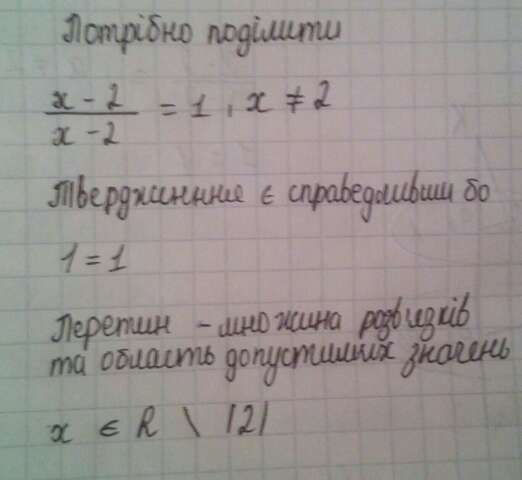 Потрібно поділити
x - 2 / x - 2 = 1, x ≠ 2
Твердження є справедливим бо
1 = 1
Перетин - множина розв'язків
та область допустимих значень
x ∈ R \ |2|